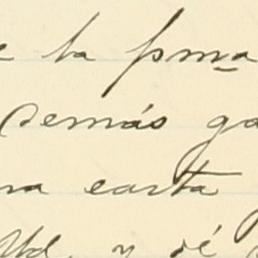 e la pma
demás ga
na carta
Ud. y dé